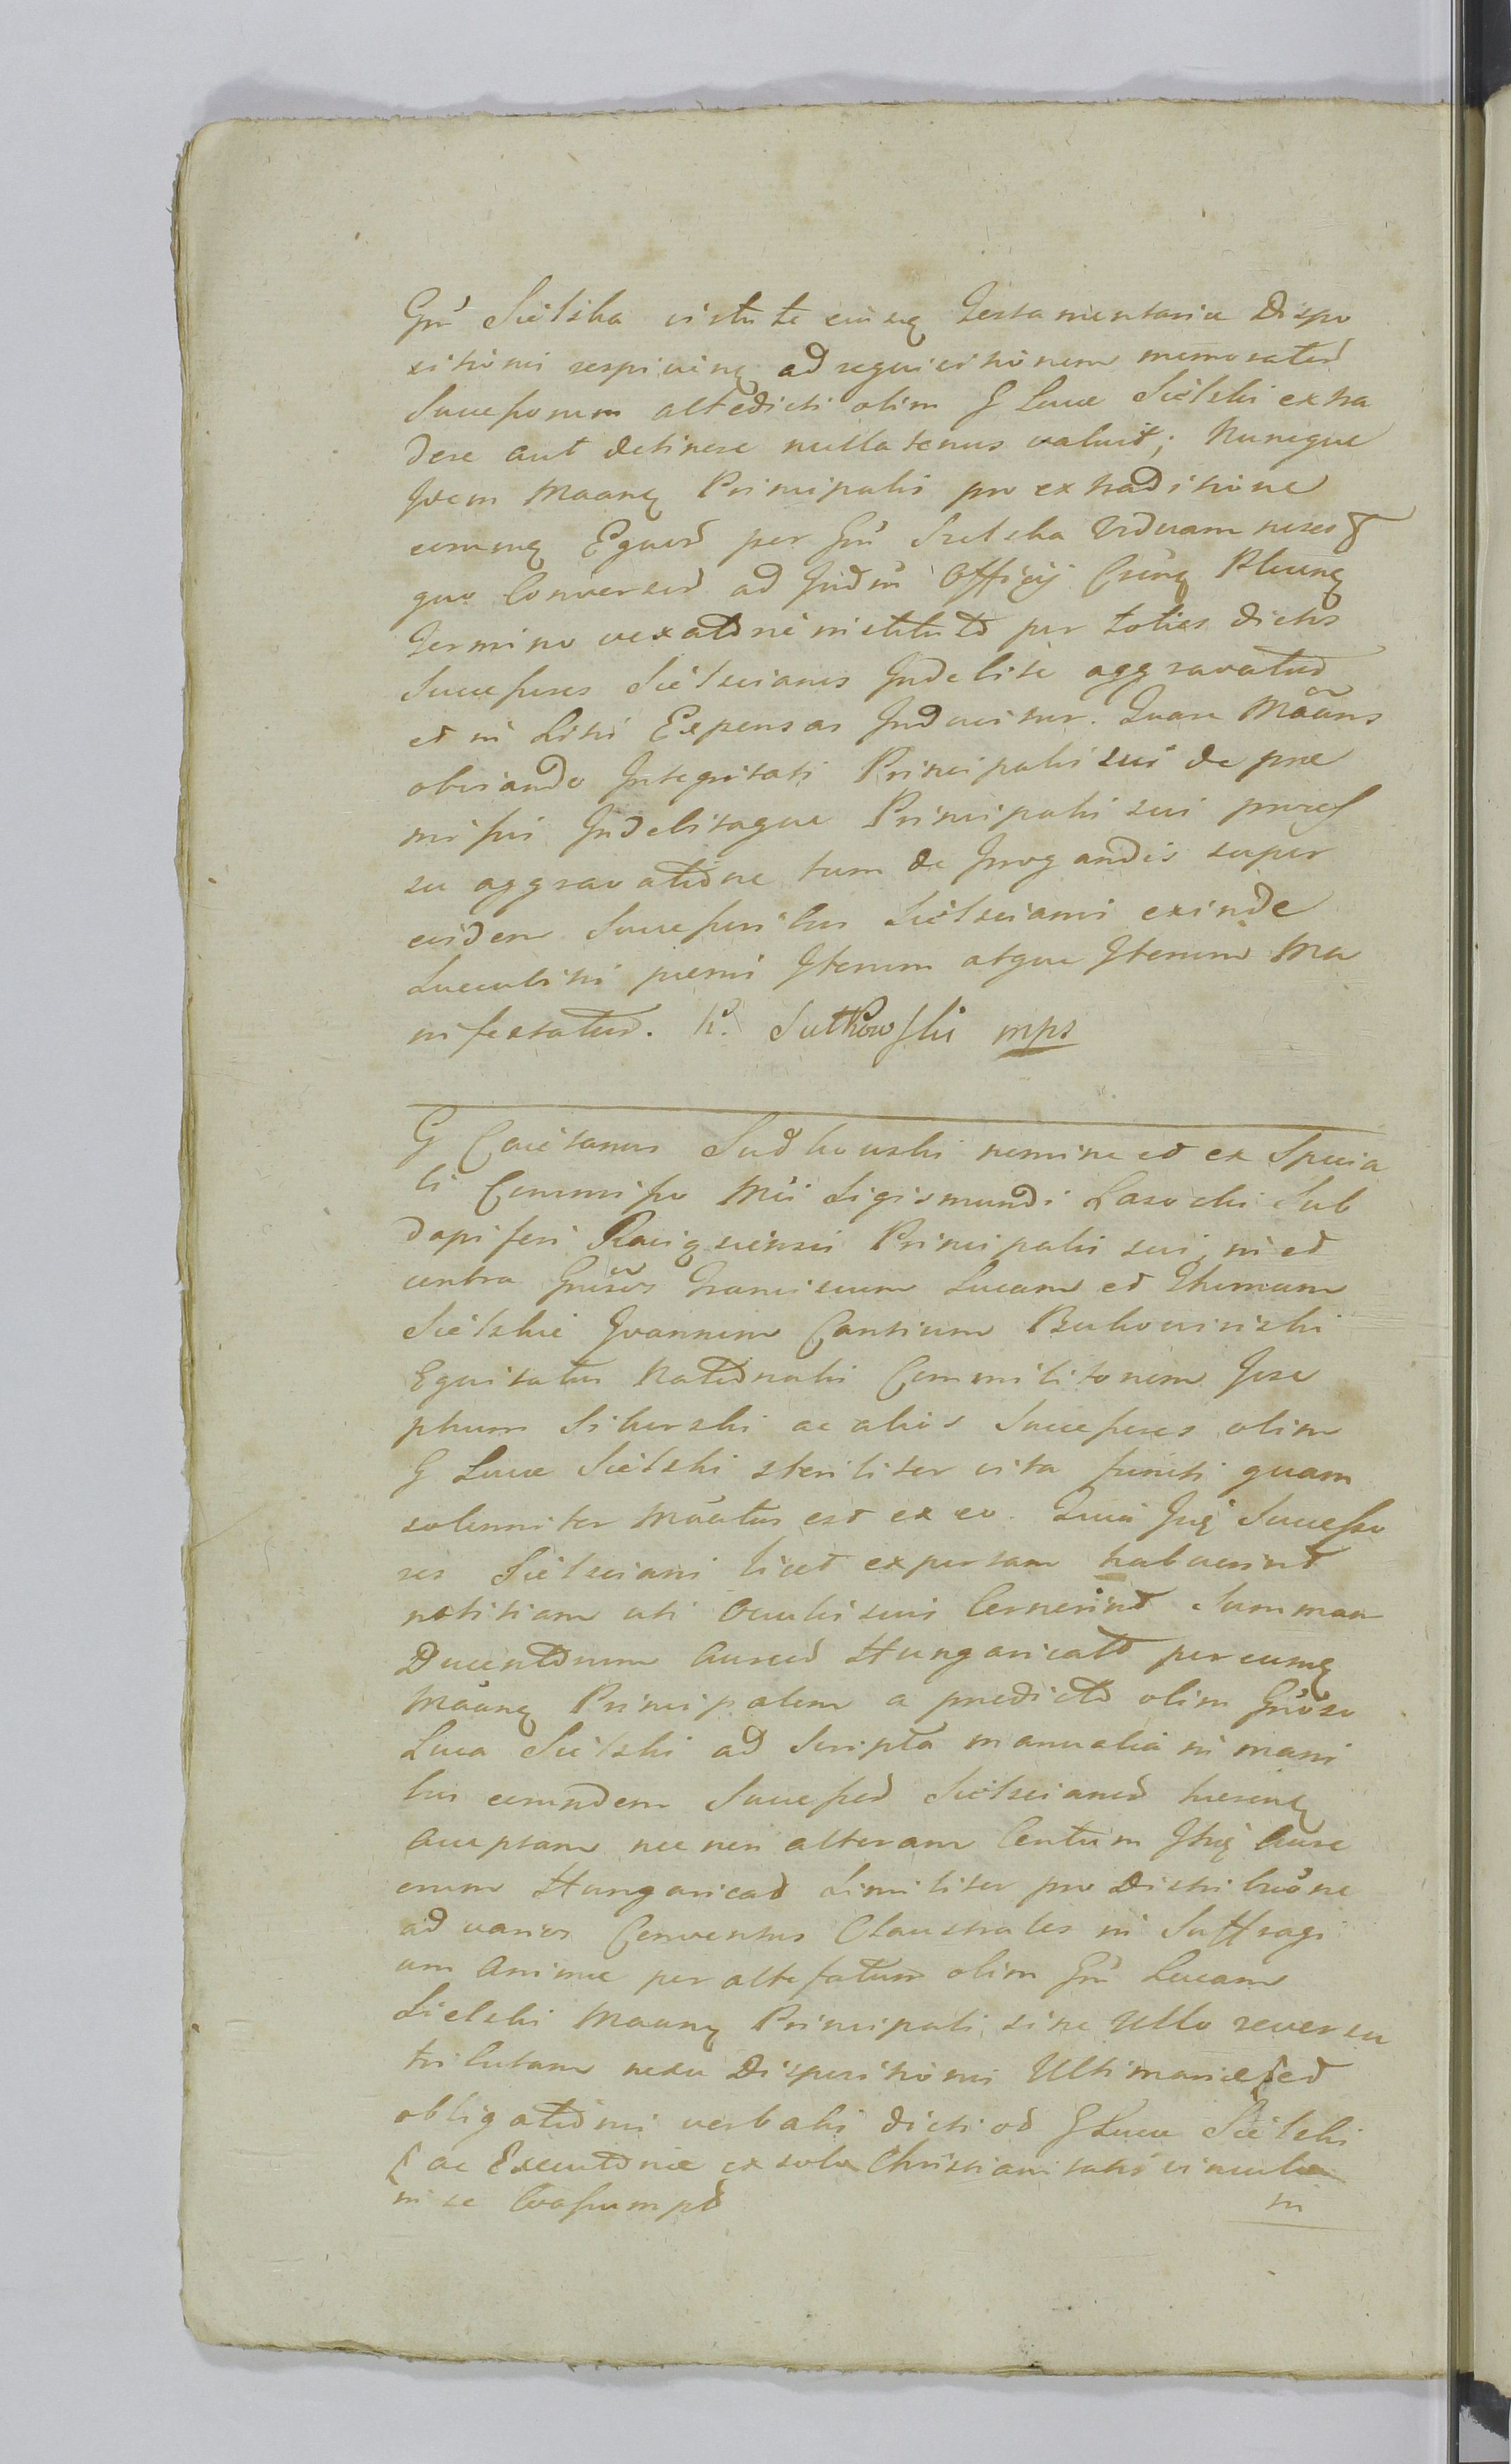 Gñ Sielska virtute eiusq Testamentariæ Dispo
sitionis respiciinq ad requisitionem memoratos
Successorum altedicti olim G Lucæ Sielski extra
dere aut detinere nullatenus valuit; Nuncque
Idem Maanq Principalis pro extraditione
eorumq Equord per Gñ Sielska Viduam
quo Conversed ad Judm Officij Plunq
Termino vexatõne institutõ per toties dictos
Successores Sielscianos Indebite aggravatur
et in Litis Expensas Inducitur. Quare Mãans
obviando Integritati Principalis sui de præ
missis Indebitaque Principalis sui
su aggravatiõne tum de Irrogandis super
eisdem Successoribus Sielscianis exinde
Luccubitis pænis Iterum atque Iterum Ma
nifestatur. K. Sutkowski mps
G Caietanus Sudkowski nomine et ex Specia
li Commisso Mci Sigismundi Lasocki Sub
dapiferi Raciqsciensis Principalis sui, in et
contra Gñsos Franciscum Lucam et Thomam
Sielskie Joannem Cantium Bukowinski
Equitatus Natiõnalis Commilitonem Jose
phum Sikorski ac alios Successores olim
G Lucæ Sielski steriliter vita functi quam
solenniter Mãatus est ex eo. Quia Iiq Successo
res Sielsciani licet expertam habuerint
notitiam uti Oculis suis Cernerint Summam
Ducentõrum Aureod Hungaricatõ per eumq
Mãanq Principalem a prædictõ olim Gñoso
Luca Sielski ad Scripta manualia in mani
bus eorundem Successod Sielscianod hærenq
Acceptam nec non alteram Centum Itiq Aure
orum Hungaricad Similiter pro Distribuõne
ad varios Conventus Claustrales in Suffragi
um Animæ per altefatum olim Gñ Lucam
Sielski Maanq Principali sine Ullo reversu
tributam nexu Dispositionis Ultimariæ et
obligatiõnis verbalis dicti od G Lucæ Sielski
ac Executõriæ ex solo Christianitatis vinculo
in se Coassumptõ
in